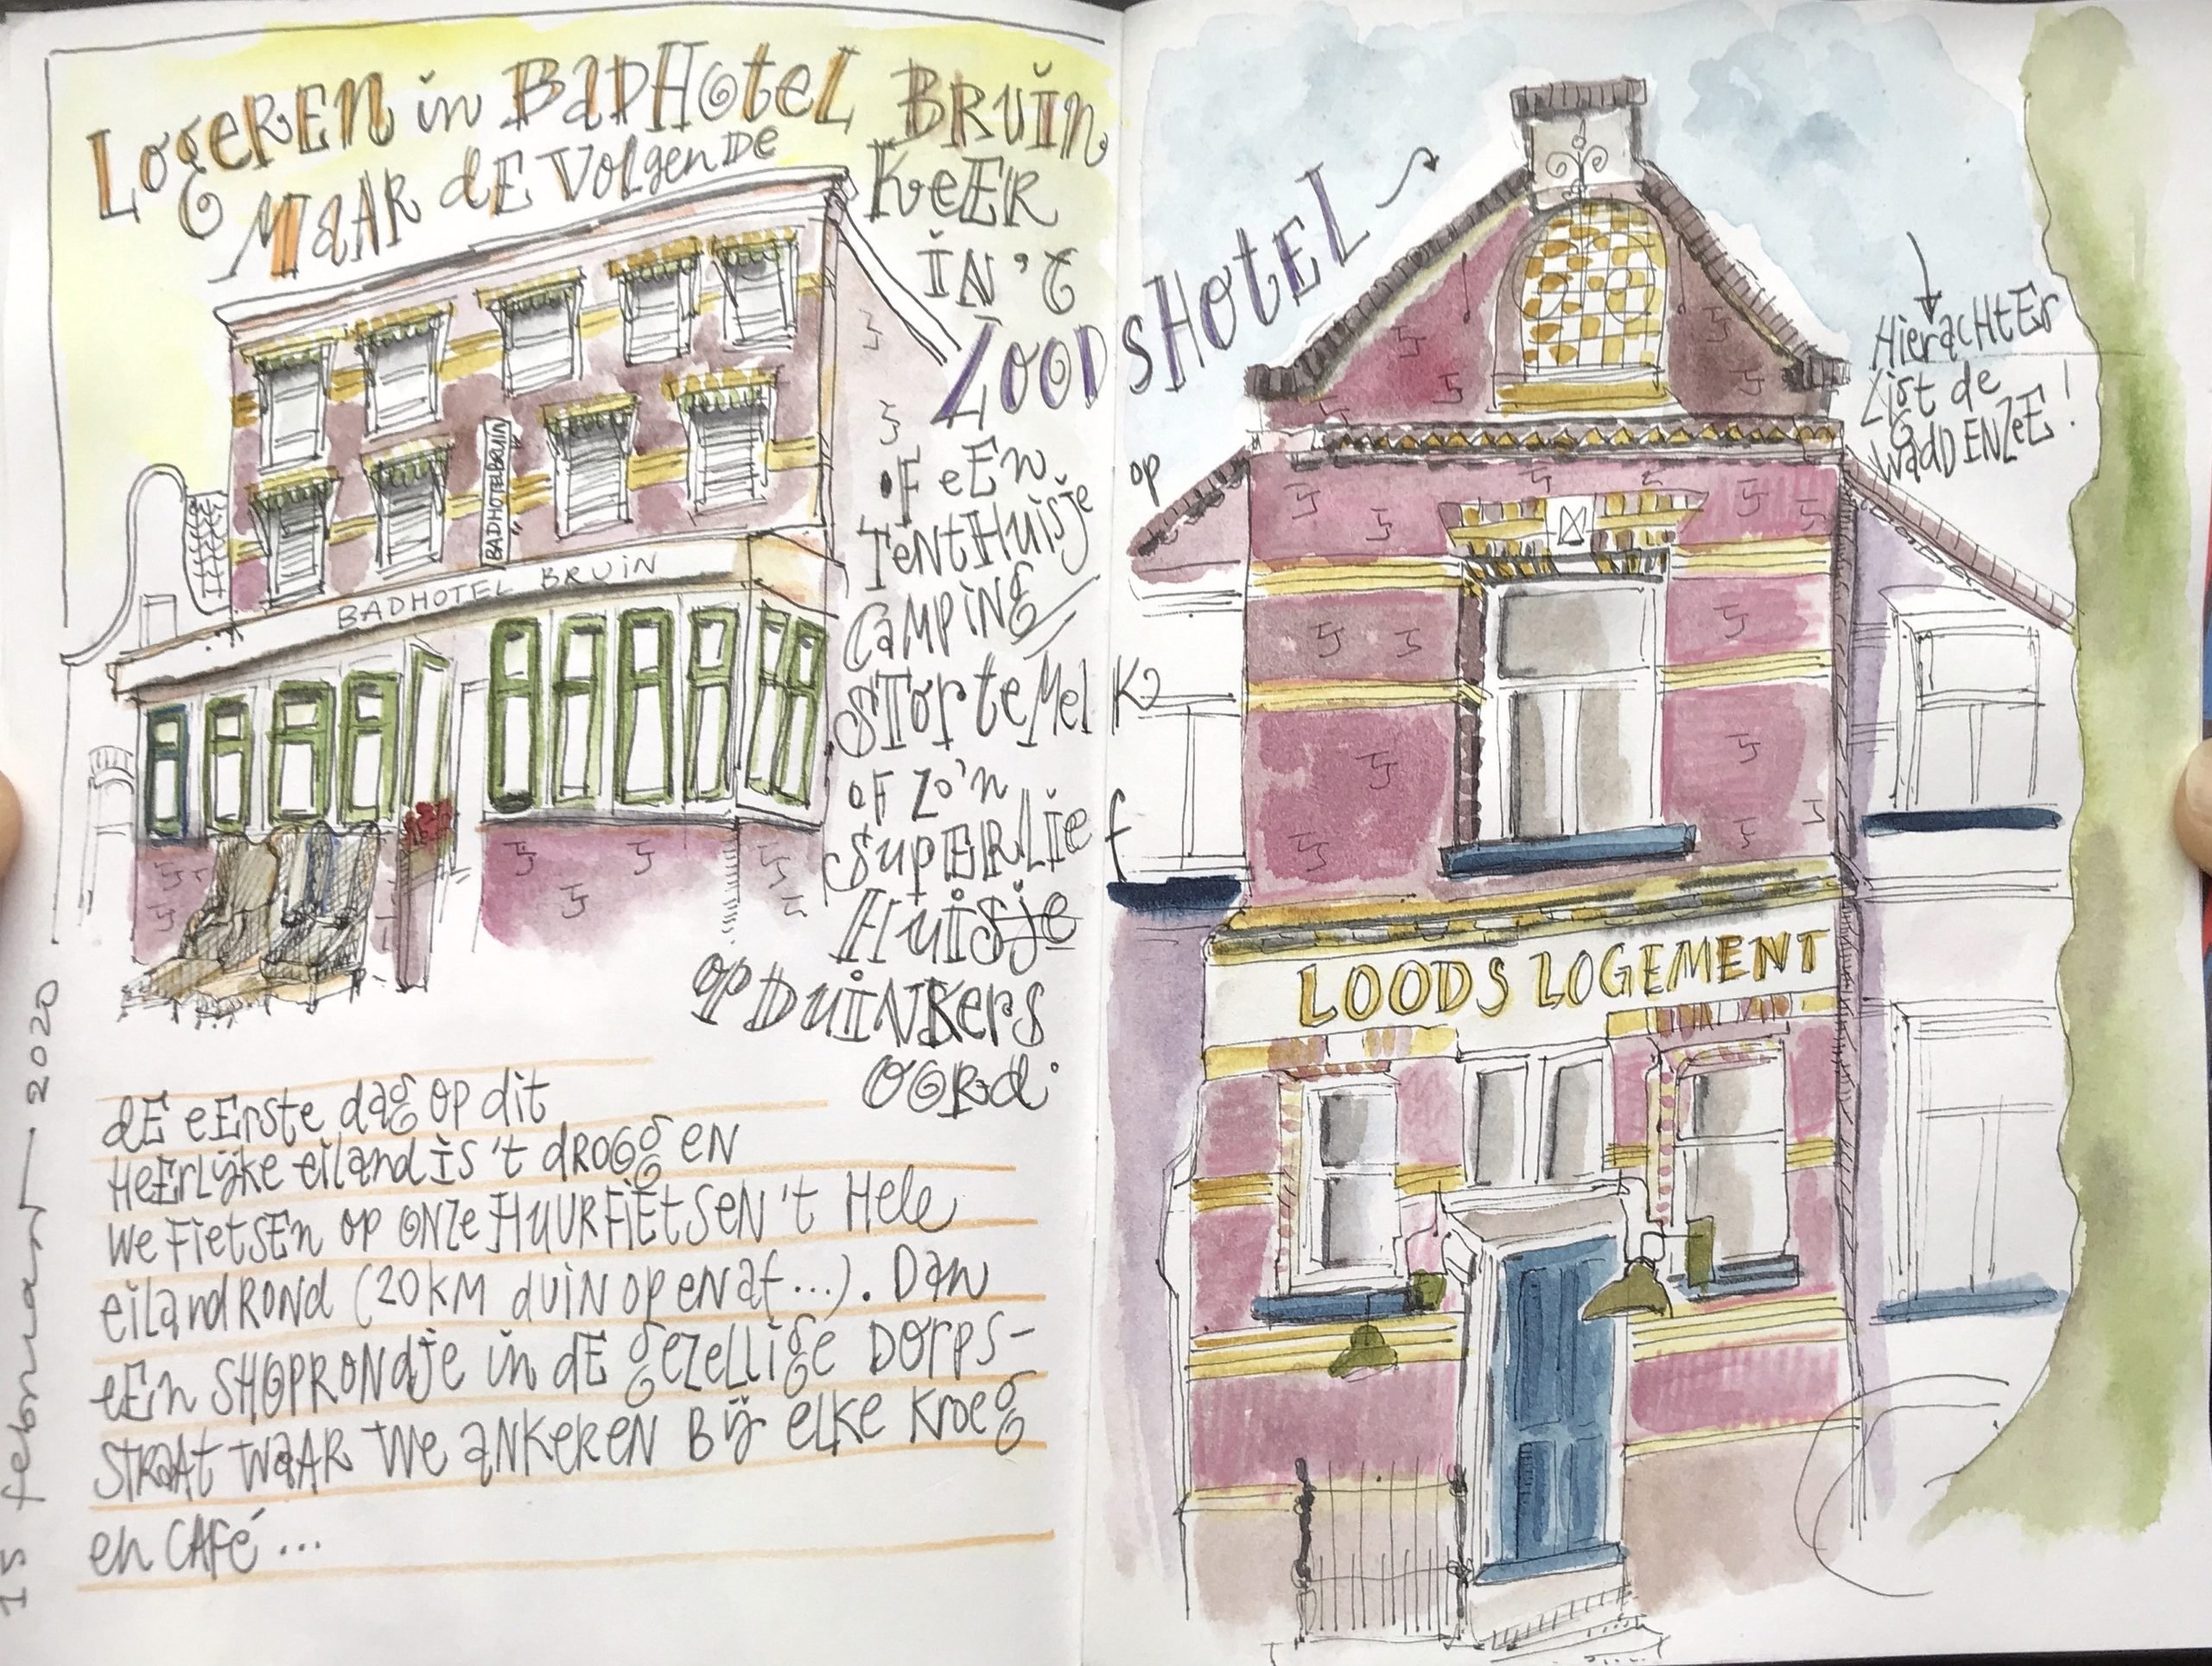 Logeren in BadHotel Bruin
maar de volgende
keer
in 't
Loodshotel
of een
tenthuisje op
camping
Stortemelk
of zo'n
superlief
huisje
op Duinkers
oord.
BADHOTEL BRUIN
BADHOTEL BRUIN
de eerste dag op dit
heerlijke eiland is 't droog en
we fietsen op onze huurfietsen 't hele
eiland rond (20 km duin op en af...). Dan
een shoprondje in de gezellige dorps-
straat waar we ankeren bij elke kroeg
en café...
15 februari - 2020
Hierachter
ligt de
Waddenzee!
LOODS LOGEMENT